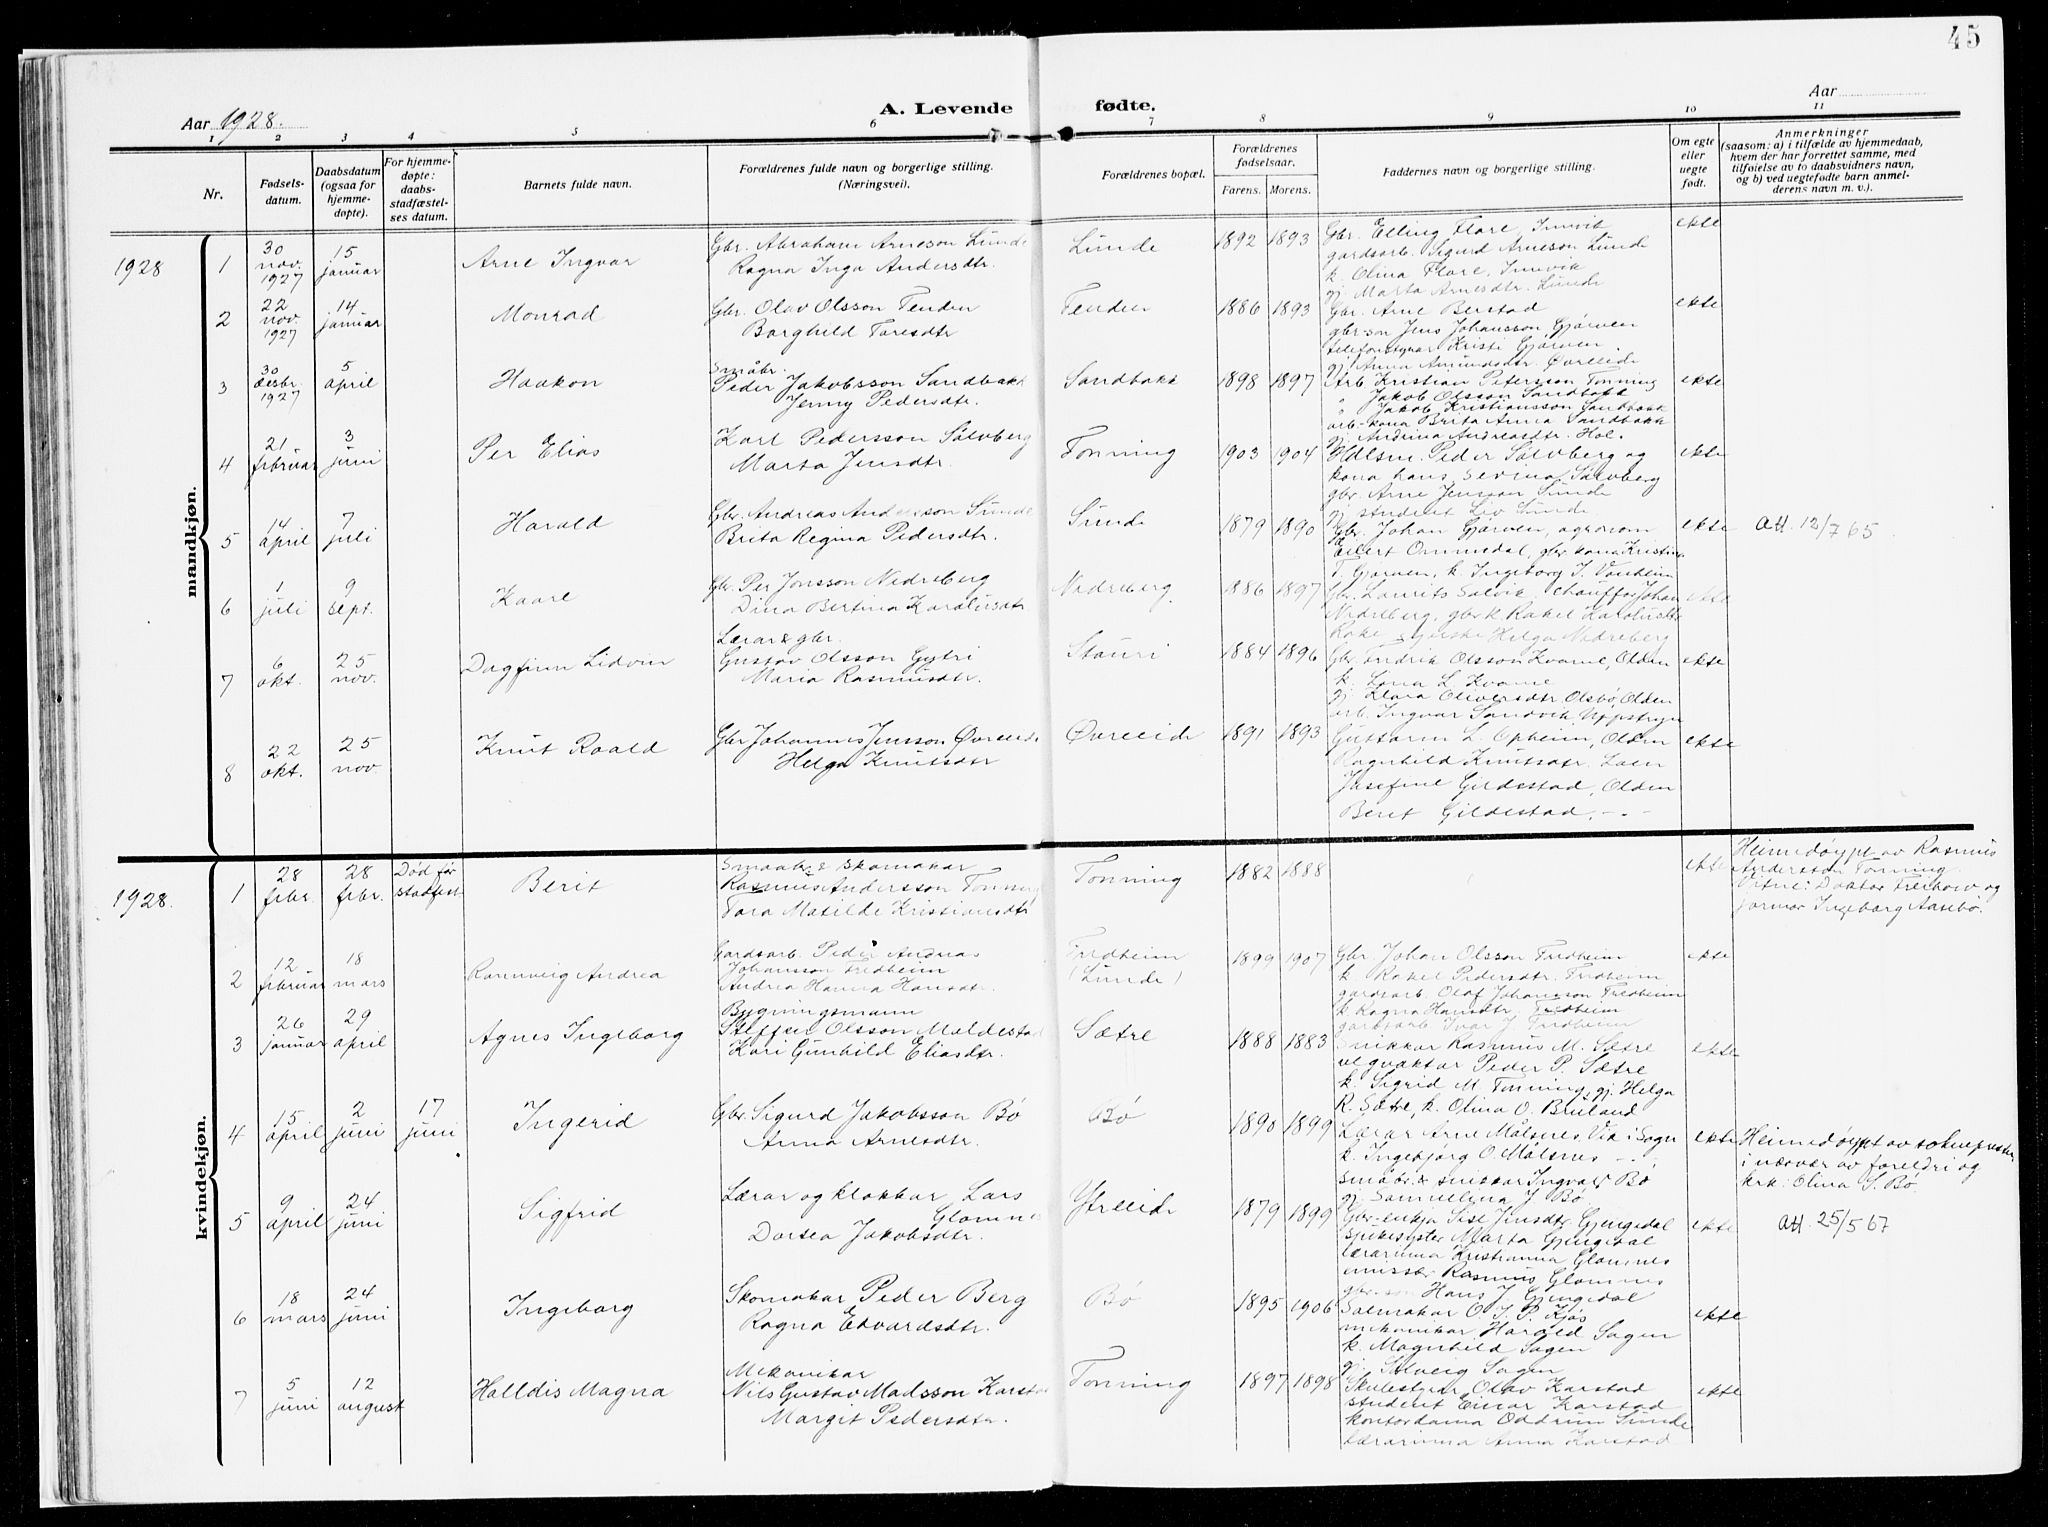 45
Aar 1928.
A. Levende fødte.
Aar
1 2 3 4 5 6 7 8 9 10 11
Nr.
Fødsels-
datum.
Daabsdatum
(ogsaa for
hjemme-
døpte).
For hjemme-
døpte:
daabs-
stadfæstel-
ses datum.
Barnets fulde navn.
Forældrenes fulde navn og borgerlige stilling.
(Næringsvei).
Forældrenes bopæl.
Forældrenes
fødselsaar.
Farens. Morens.
Faddernes navn og borgerlige stilling.
Om egte
eller
uegte
født.
Anmerkninger
(saasom: a) i tilfælde av hjemmedaab,
hvem der har forrettet samme, med
tilføielse av to daabsvidners navn,
og b) ved uegtefødte barn anmel-
derens navn m. v.).
mandkjøn.
1928
1
30
nov.
1927
15
januar
Arne Ingvar
Gbr. Abraham Arneson Lunde
Ragna Inga Andersdtr.
Lunde
1892 1893
Gbr. Elling Flore, Innvik
gardsarb. Sigurd Arneson Lunde
k. Olina Flore, Innvik
gj. Marta Arnesdtr. Lunde
ekte
2
22
nov.
1927
14
januar
Monrad
Gbr. Olav Olsson Tenden
Borghild Taresdtr
Tenden
1886 1893
Gbr. Arne Berstad
gbr-son Jens Johansson Gjørven
telefonstyrar Kristi Gjørven.
gj. Anna Amundsdtr. Øvreeide
ekte
3
30
desbr.
1927
5
april
Haakon
Småbr.
Peder Jakobsson Sandbakk
Jenny Pedersdtr.
Sandbakk
1898 1897
Arb. Kristian Petersson Tonning
" Jakob Olsson Sandbakk
" Jakob Kristiansson Sandbakk
arb-kona Brita Anna Sandbakk
gj. Andrina Andreasdtr. Hol.
ekte
4
21
februar
3
juni
Per Elias
Karl Pedersson Sølvberg
Marta Jensdtr.
Tonning
1903 1904
Hdlsm. Peder Sølvberg og
kona hans Sevina Sølvberg
gbr. Arne Jensson Sunde
gj. student Liv Sunde.
ekte
5
14
april
7
juli
Harald
Gbr. Andreas Andersson Sunde
Brita Regina Pedersdtr.
Sunde
1879 1890
Gbr. Johan Gjørven, agronom
Eilert Ommedal, gbr kona Kristine
T. Gjørven, k. Ingeborg J. Vonheim
ekte
att. 12/7 65
6
1
juli
9
sept.
Kaare
Gbr. Per Jonsson Nedreberg
Dina Bertina Karolusdtr
Nedreberg
1886 1897
Gbr. Laurits Solvik, chauffør Johan
Nedreberg, gbr k. Rakel Karolusdtr
Rake, gjente Helga Nedreberg
ekte
7
6
okt.
25
nov.
Dagfinn Lidvin
Lærar & gbr.
Gustav Olsson Gytri
Maria Rasmusdtr.
Stauri
1884 1896
Gbr. Fredrik Olsson Kvame, Olden
k. Lena L. Kvame
gj. Klara Oliversdtr Olsbø, Olden
arb. Ingvar Sandvik, Uppstryn
ekte
8
22
okt.
25
nov.
Knut Roald
Gbr Johannes Jensson Øvreeide
Helga Knutsdtr
Øvreeide
1891 1893
Guttorm L. Opheim, Olden
Ragnhild Knutsdtr. Loen
Josefine Gildestad, Olden
Berit Gildestad, -"-
ekte
kvindekjøn.
1928.
1
28
febr.
28
febr.
Død før
stadfest.
Berit
Smaabr. & skomakar
Rasmus Andersson Tonning
Tora Matilde Kristiansdtr
Tonning
1882 1888
ekte
Heimedøypt av Rasmus
Andersson Tonning.
Vitne: Doktor Freihow og
jormor Ingeborg Aasebø.
2
12
februar
18
mars
Rannveig Andrea
Gardsarb. Peder Andreas
Johansson Fredheim
Andrea Hanna Hansdtr.
Fredheim
(Lunde)
1899 1907
Gbr. Johan Olsson Fredheim
k. Rakel Pedersdtr. Fredheim
gardsarb. Olaf Johansson Fredheim
k. Ragna Hansdtr. Fredheim
gardsarb Ivar J. Fredheim
ekte
3
26
januar
29
april
Agnes Ingeborg
Bygningsmann
Steffen Olsson Meldestad
Kari Gunhild Eliasdtr.
Sætre
1888 1883
Snikkar Rasmus M. Sætre
vegvaktar Peder P. Sætre
k. Sigrid M. Tonning, gj. Helga
R. Sætre, k. Olina O. Bruland
ekte
4
15
april
2
juni
17
juni
Ingerid
Gbr. Sigurd Jakobsson Bø
Anna Arnesdtr.
Bø
1890 1899
Lærar Arne Målsnes, Vik i Sogn
k. Ingebjørg O. Målsnes -"-
småbr. & snikkar Ingvald Bø
gj. Samuelina J. Bø
ekte
Heimedøypt av soknepresten
i nærvær av foreldri og
krk: Olina S. Bø.
5
9
april
24
juni
Sigfrid
Lærar og klokkar Lars
Glomnes
Dortea Jakobsdtr.
Ytreeide
1879 1899
Gbr-enkja Sise Jensdtr. Gjengedal
sjukesyster Marta Gjengedal
lærarinna Kristianna Glomnes
emissær Rasmus Glomnes
gbr-son Hans J. Gjengedal
ekte
att. 25/5 67
6
18
mars
24
juni
Ingeborg
Skomakar Peder Berg
Ragna Edvardsdtr.
Bø
1895 1906
Salmakar O. J. P. Kjøs
mekanikar Harald Sagen
k. Magnhild Sagen
gj. Solveig Sagen
ekte
7
5
juni
12
august
Halldis Magna
Mekanikar
Nils Gustav Madsson Karstad
Margit Pedersdtr.
Tonning
1897 1898
Skulestyrar Olav Karstad
student Einar Karstad
kontordama Oddrun Sunde
lærarinna Anna Karstad
ekte